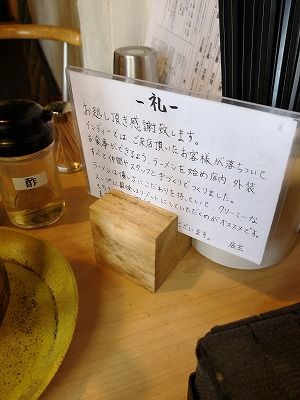 －礼－
お越し頂き感謝致します。
インディーズでは ご来店頂いたお客様が落ちついて
お食事ができるよう、ラーメンを始め店内 外装
すべて仲間とスタッフと手づくりでつくりました。
ラーメンは優しさにこだわりを持っていて、クリーミーな
スープは
にしていただくのがオススメです。
ございます。
店主
酢